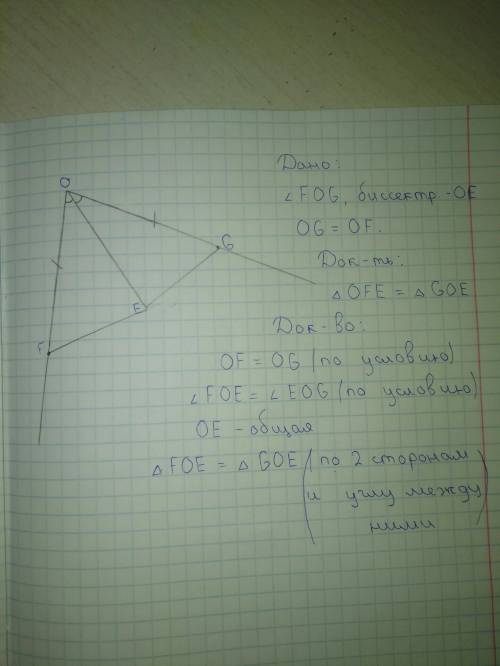 Дано:
∠FOG, биссектр. - OE
OG = OF.
Док-ть:
△OFE = △GOE
Док-во:
OF = OG (по условию)
∠FOE = ∠EOG (по условию)
OE - общая
△FOE = △GOE (по 2 сторонам
и углу между
ними)
O
G
E
F